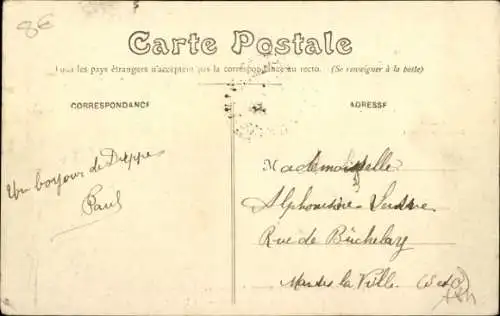 8€
Carte Postale
Tous les pays étrangers n'acceptent pas la correspondance au recto. (Se renseigner à la poste)
CORRESPONDANCE
ADRESSE
Un bonjour de Dieppe
Paul
Mademoiselle
Alphonsine
Rue de Buchelay
Mantes la Ville (S et O)